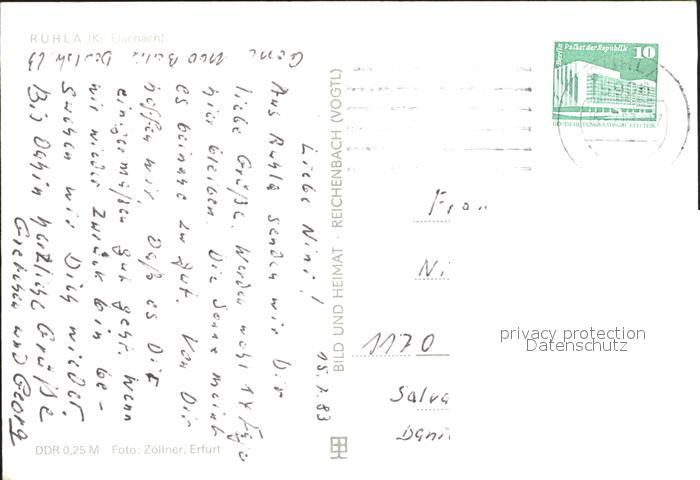 RUHLA (Kr. Eisenach)
15.2.83
Liebe Nini!
Aus Ruhla senden wir Dir
liebe Grüße. Werden wohl 14 Tage
hier bleiben. Die Sonne meint
es beinahe zu gut. Von Dir
hoffen wir, daß es Dir
einigermaßen gut geht. Wenn
wir wieder zurück sin be-
suchen wir Dich wieder.
Bis dahin herzliche Grüße
Gretchen und Georg
DDR 0,25 M Foto: Zöllner, Erfurt
BILD UND HEIMAT · REICHENBACH (VOGTL)
Berlin Palast der Republik 10
DEUTSCHE DEMOKRATISCHE REPUBLIK
Frau
Ni
1170
Salva
privacy protection
Datenschutz